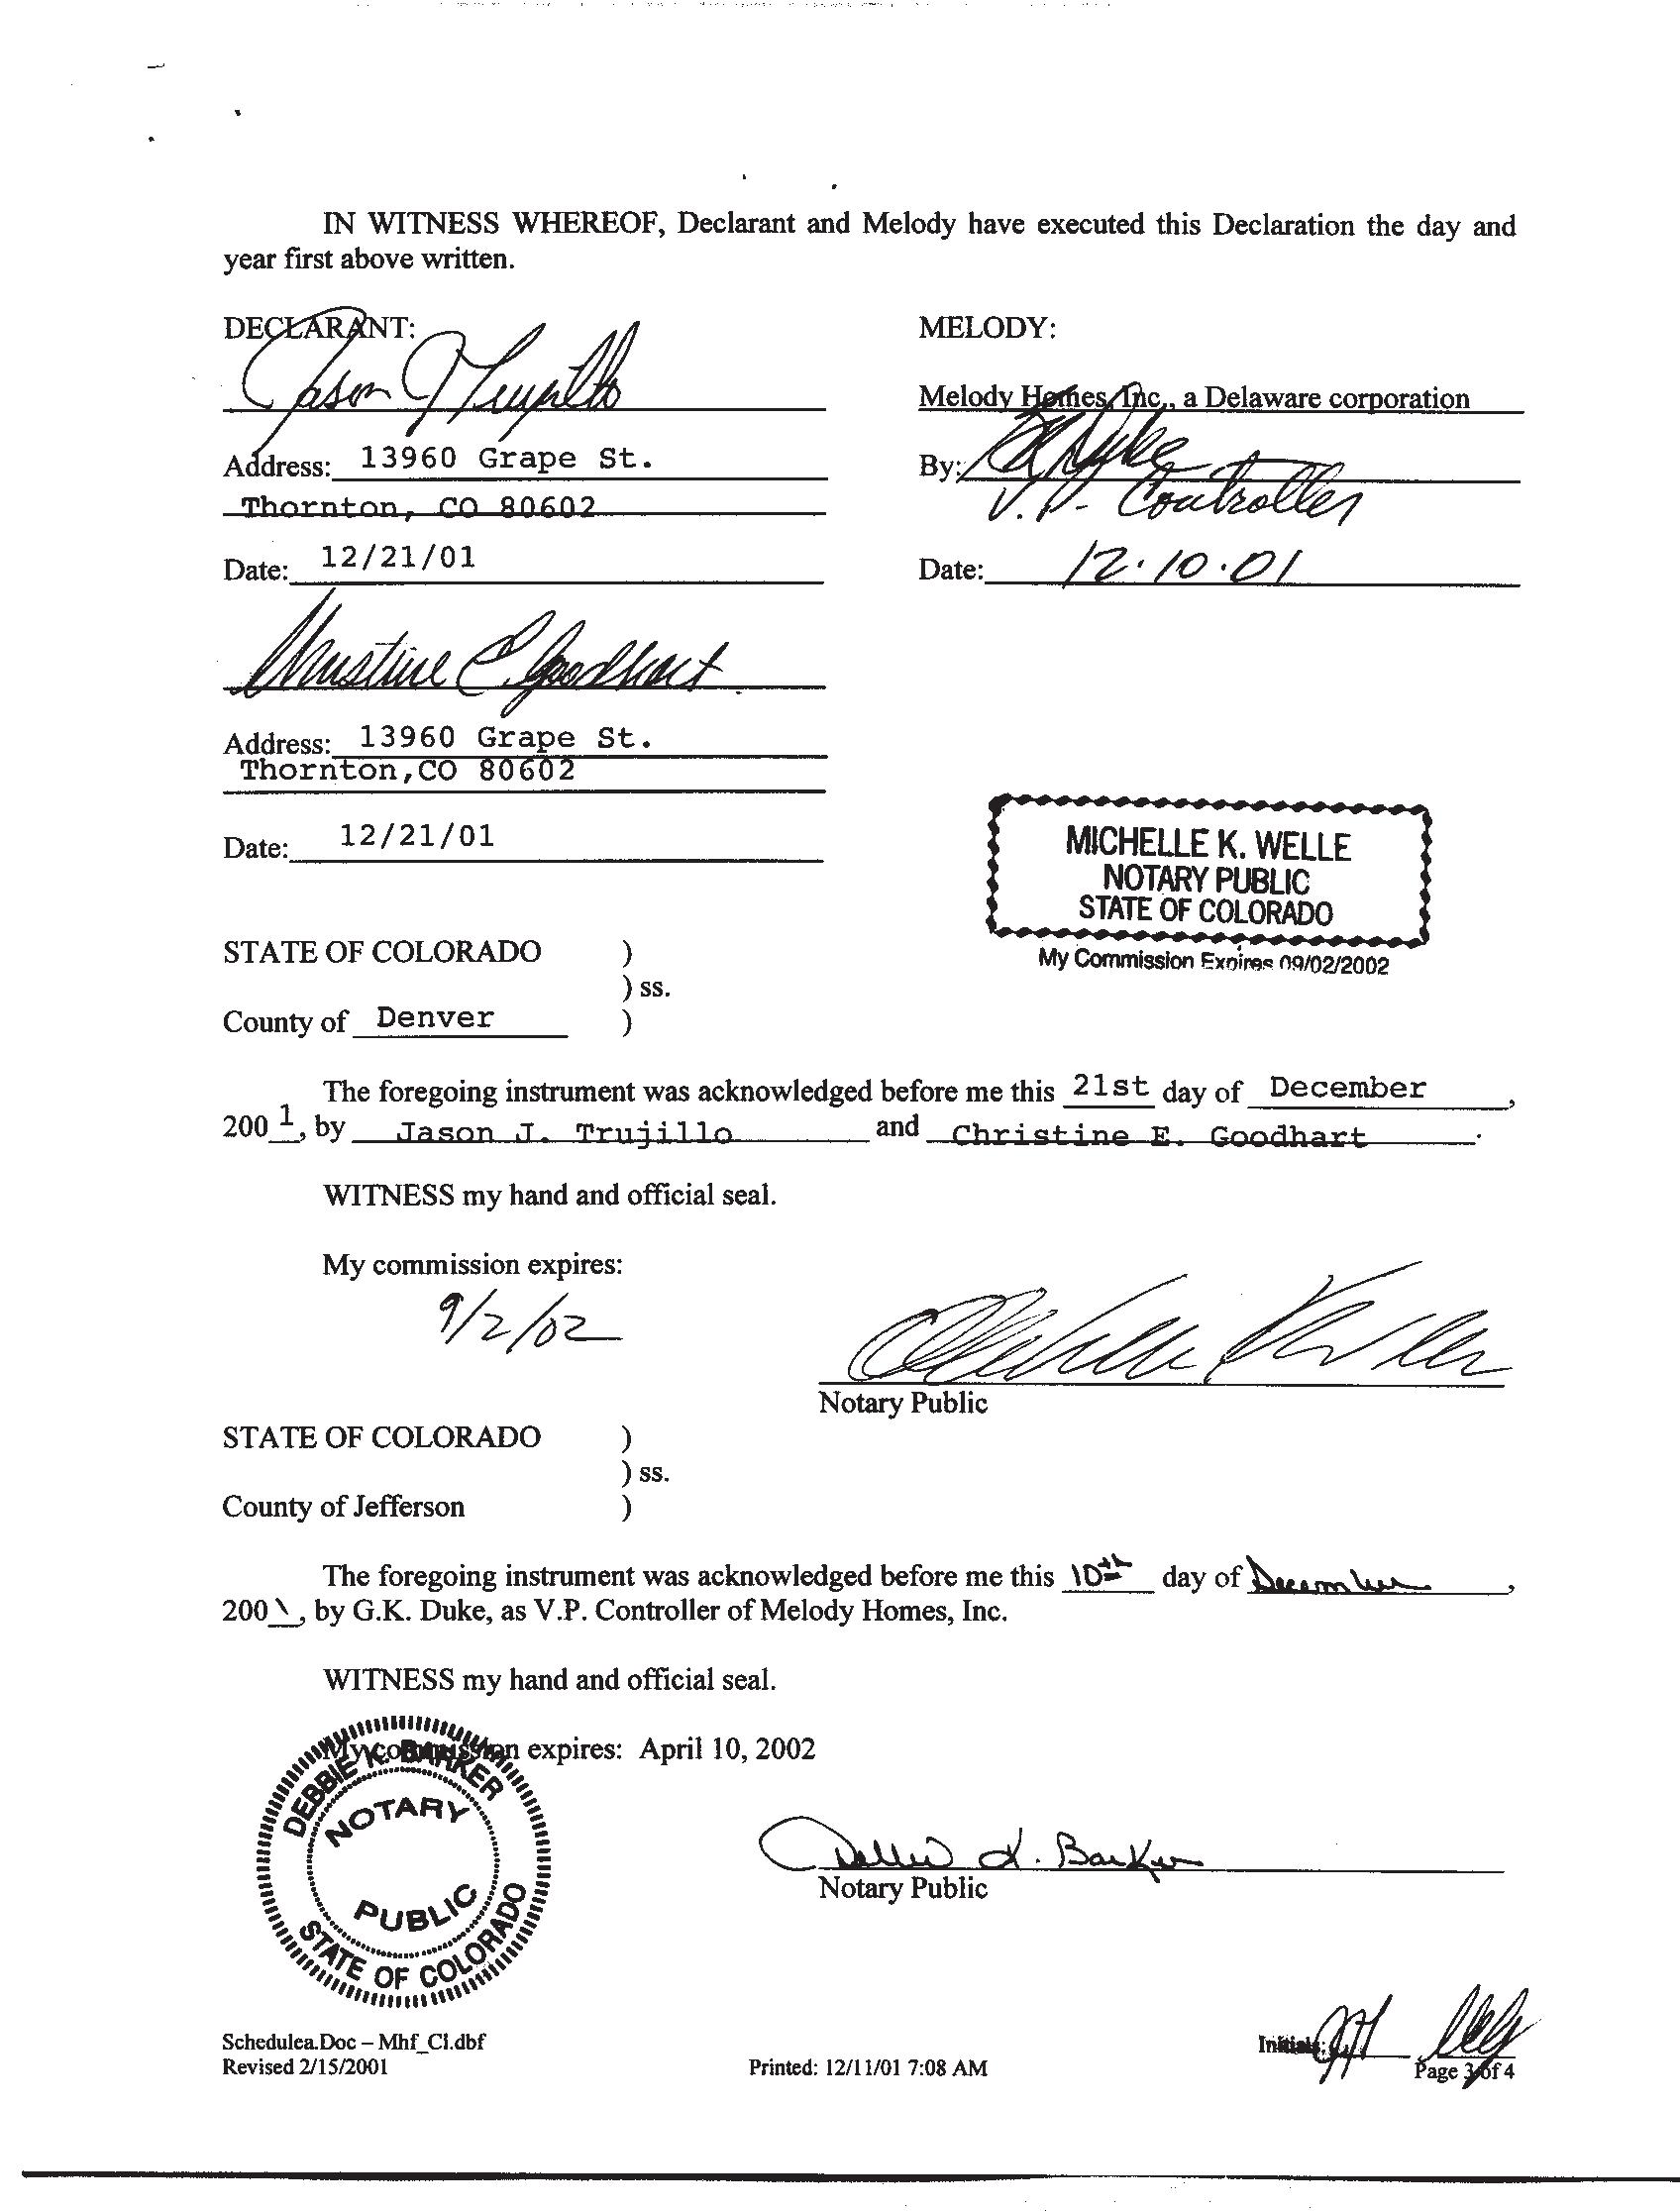 IN WITNESS WHEREOF, Declarant and Melody have executed this Declaration the day and
year first above written.
DECLARANT:
Jason J Trujillo
Address: 13960 Grape St.
Thornton, CO 80602
Date: 12/21/01
Christine E. Goodhart
Address: 13960 Grape St.
Thornton, CO 80602
Date: 12/21/01
MELODY:
Melody Homes, Inc., a Delaware corporation
By: GK Duke
V.P. Controller
Date: 12.10.01
MICHELLE K. WELLE
NOTARY PUBLIC
STATE OF COLORADO
My Commission Expires 09/02/2002
STATE OF COLORADO )
) ss.
County of Denver )
The foregoing instrument was acknowledged before me this 21st day of December,
2001, by Jason J. Trujillo and Christine E. Goodhart.
WITNESS my hand and official seal.
My commission expires:
9/2/02
Michelle K Welle
Notary Public
STATE OF COLORADO )
) ss.
County of Jefferson )
The foregoing instrument was acknowledged before me this 10th day of December,
2001, by G.K. Duke, as V.P. Controller of Melody Homes, Inc.
WITNESS my hand and official seal.
My commission expires: April 10, 2002
DEBBIE K. BARKER
NOTARY
PUBLIC
STATE OF COLORADO
Debbie K. Barker
Notary Public
Schedulea.Doc – Mhf_Cl.dbf
Revised 2/15/2001
Printed: 12/11/01 7:08 AM
Initials: JJT
Page 3 of 4